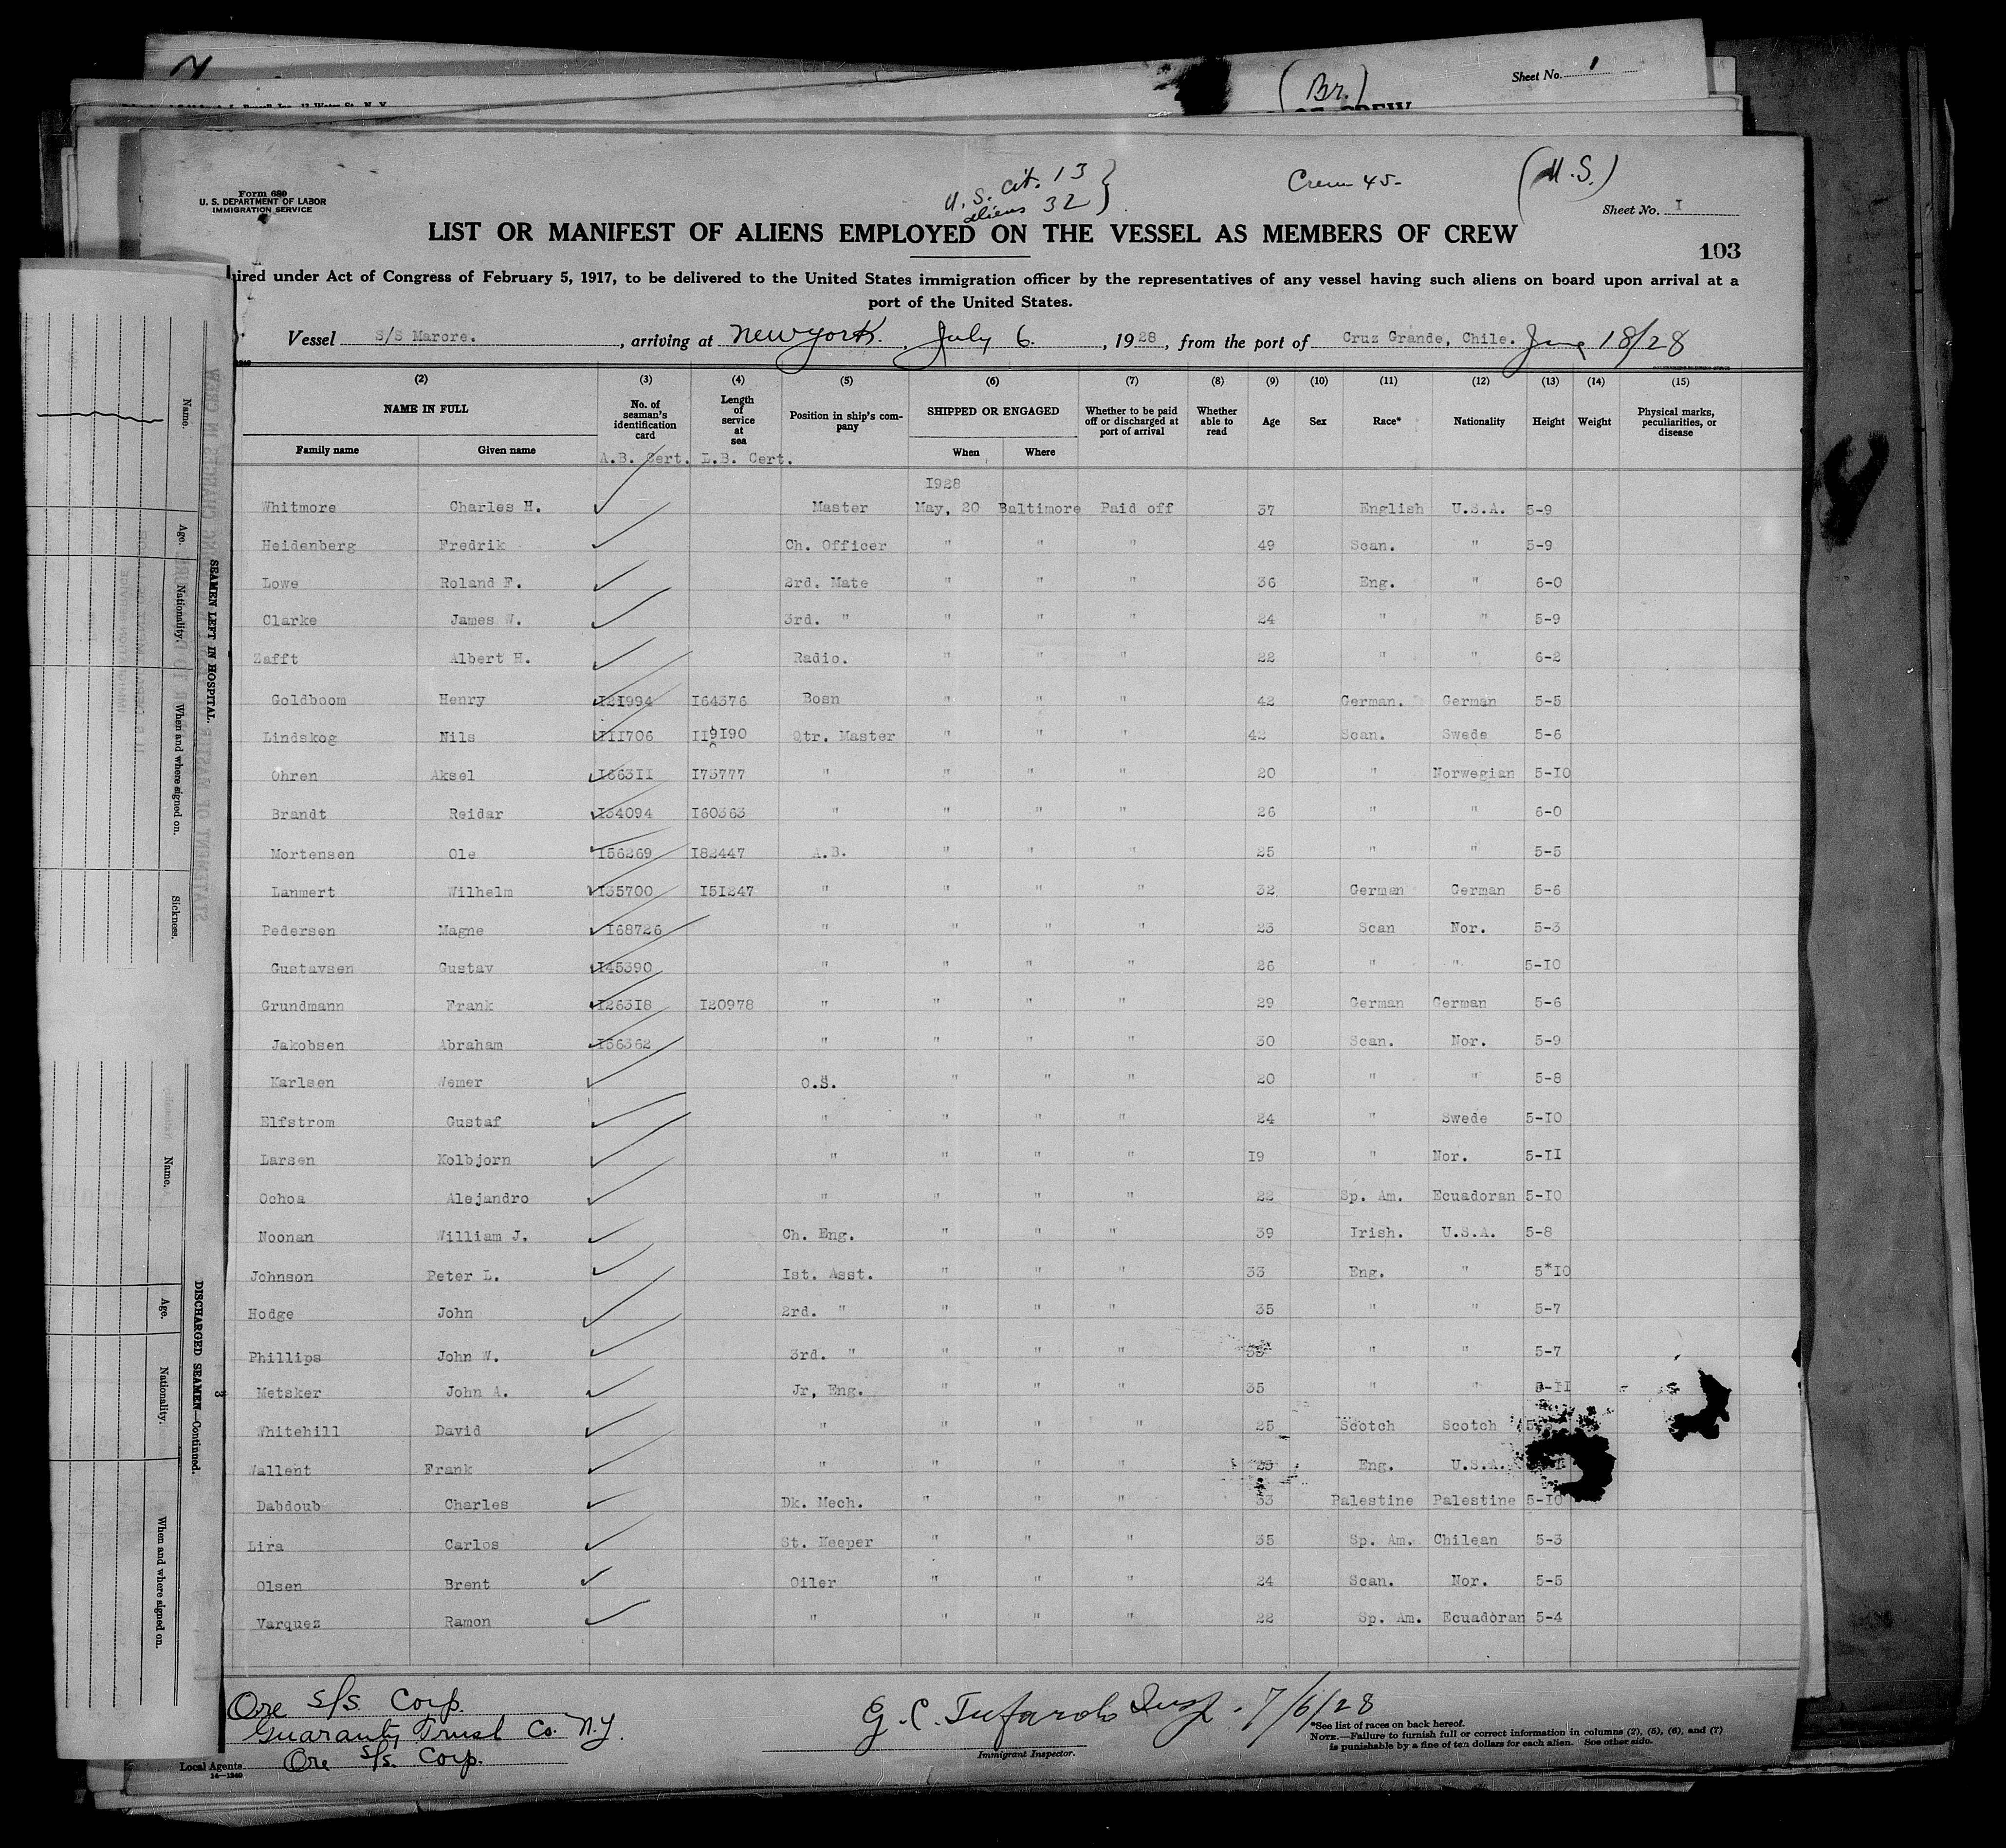 Sheet No. 1
(Br.)
Form 680
U. S. DEPARTMENT OF LABOR
IMMIGRATION SERVICE
U. S. cit. 13
aliens 32
Crew 45-
(U.S.)
Sheet No. I
LIST OR MANIFEST OF ALIENS EMPLOYED ON THE VESSEL AS MEMBERS OF CREW
103
ired under Act of Congress of February 5, 1917, to be delivered to the United States immigration officer by the representatives of any vessel having such aliens on board upon arrival at a
port of the United States.
Vessel S/S Marore. , arriving at New York. , July 6. , 1928 , from the port of Cruz Grande, Chile. June 18/28
(2) (3) (4) (5) (6) (7) (8) (9) (10) (11) (12) (13) (14) (15)
NAME IN FULL No. of seaman's identification card Length of service at sea Position in ship's company SHIPPED OR ENGAGED Whether to be paid off or discharged at port of arrival Whether able to read Age Sex Race* Nationality Height Weight Physical marks, peculiarities, or disease
Family name Given name A.B. Cert. L.B. Cert. When Where
1928
Whitmore Charles H. Master May, 20 Baltimore Paid off 37 English U.S.A. 5-9
Heidenberg Fredrik Ch. Officer " " " 49 Scan. " 5-9
Lowe Roland F. 2rd. Mate " " " 36 Eng. " 6-0
Clarke James W. 3rd. " " " " 24 " " 5-9
Zafft Albert H. Radio. " " " 22 " " 6-2
Goldboom Henry I21994 I64376 Bosn " " " 42 German. German 5-5
Lindskog Nils III706 II9I90 Qtr. Master " " " 42 Scan. Swede 5-6
Ohren Aksel I663II I73777 " " " " 20 " Norwegian 5-10
Brandt Reidar I34094 I60363 " " " " 26 " " 6-0
Mortensen Ole I56269 I82447 A.B. " " " 25 " " 5-5
Lanmert Wilhelm I35700 I5I247 " " " " 32 German German 5-6
Pedersen Magne I68726 " " " " 23 Scan Nor. 5-3
Gustavsen Gustav I45390 " " " " 26 " " 5-10
Grundmann Frank I263I8 I20978 " " " " 29 German German 5-6
Jakobsen Abraham I56362 " " " " 30 Scan. Nor. 5-9
Karlsen Wemer O.S. " " " 20 " " 5-8
Elfstrom Gustaf " " " " 24 " Swede 5-10
Larsen Kolbjorn " " " " I9 " Nor. 5-II
Ochoa Alejandro " " " " 22 Sp. Am. Ecuadoran 5-10
Noonan William J. Ch. Eng. " " " 39 Irish. U.S.A. 5-8
Johnson Peter L. Ist. Asst. " " " 33 Eng. " 5*10
Hodge John 2rd. " " " " 35 " " 5-7
Phillips John W. 3rd. " " " " " " 5-7
Metsker John A. Jr, Eng. " " " 35 " " 5-II
Whitehill David " " " " 25 Scotch Scotch
Wallent Frank " " " " Eng. U.S.A.
Dabdoub Charles Dk. Mech. " " " 33 Palestine Palestine 5-10
Lira Carlos St. Keeper " " " 35 Sp. Am. Chilean 5-3
Olsen Brent Oiler " " " 24 Scan. Nor. 5-5
Varquez Ramon " " " " 22 Sp. Am. Ecuadoran 5-4
Ore S/S. Corp.
Guaranty Trust Co. N.Y.
Local Agents Ore S/S. Corp.
14—1240
G. C. Tufarolo Insp. 7/6/28
Immigrant Inspector.
*See list of races on back hereof.
NOTE.—Failure to furnish full or correct information in columns (2), (5), (6), and (7)
is punishable by a fine of ten dollars for each alien. See other side.
SEAMEN LEFT IN HOSPITAL.
Name. Age. Nationality. When and where signed on. Sickness.
DISCHARGED SEAMEN—Continued.
Name. Age. Nationality. When and where signed on.
3